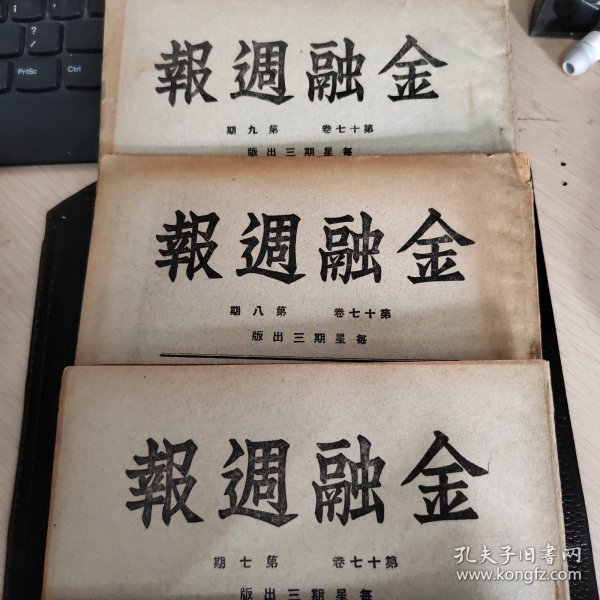 PrtSc
Ctrl
金融週報
第十七卷 第九期
每星期三出版
金融週報
第十七卷 第八期
每星期三出版
金融週報
第十七卷 第七期
每星期三出版
孔夫子旧书网
www.kongfz.com